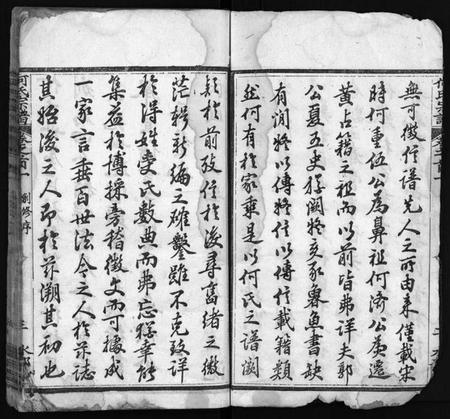 無可徵信譜先人之所由来僅載宋
時何重伍公為鼻祖何济公英遷
黄占籍之祖而以前皆弗詳夫郭
公夏五史猶闕疑亥豕魯魚書缺
有间將以傳疑以傳信載籍類
然何有於家乘是以何氏之譜闕
疑於前孜信於後尋墜緒之微
茫輯新编之雖鑿雖不克致詳
於得姓受氏數典而弗忘猶幸能
集益於博採旁稽徵文而可據成
一家言垂百世法令之人於茲誌
其始後之人即於茲溯其初也
何氏宗譜
卷之首一
創修序
三